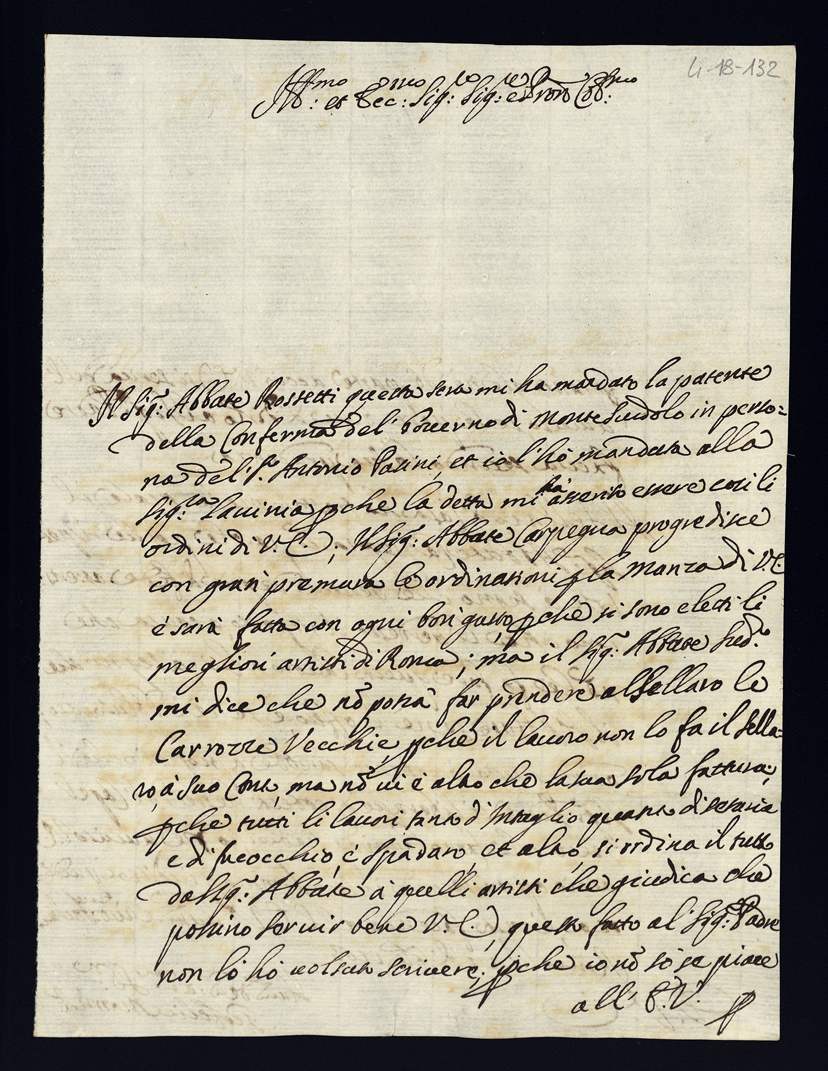 4-18-132
Ill:mo et Ecc:mo Sig:re Sig:re e Pron Coll:mo
Il Sig:r Abbate Rossetti questa sera mi ha mandato la patente
della Conferma del' Governo di Monte Scudolo in perso=
na del S.r Antonio Pasini et io l'hò mandata alla
Sig:ra Lavinia pche la detta mi hà asserito essere così li
ordini di V.E., Il Sig:r Abbate Carpegna progredisce
con gran premura le ordinationi p la Manza di V.E.
e sarà fatta con ogni bon gusto pche si sono eletti li
megliori artisti di Roma; ma il Sig:r Abbate Sud.o
mi dice che nõ potrà far prendere al Sellaro le
Carrozze Vecchie, pche il lavoro non lo fa il Sella=
ro, à suo Conto, ma nõ vi è altro che la sua sola fattura,
pche tutti li lavori tanto d'Intaglio quanto di setaria
e di ferocchio, e Spadaro, et altro, si ordina il tutto
dal Sig:r Abbate à quelli artisti che giudica che
possino servir bene V.E., questo fatto al Sig:r Padre
non l'hò volsuto scrivere, pche io nõ sò se piace
all' E.V.